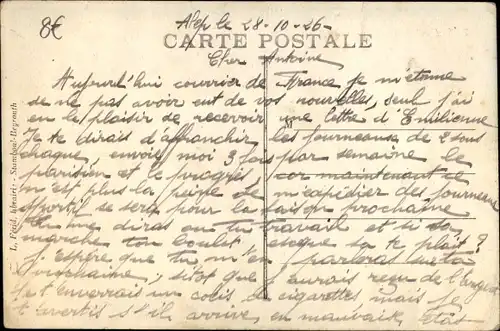 8€
Alep le 28-10-26-
CARTE POSTALE
Cher Antoine
Aujourd'hui courrier de France je m'étonne
de ne pas avoir eut de vos nouvelles, seul j'ai
eu le plaisir de recevoir une lettre d'Emilienne
Je te dirais d'affranchir les journeaux de 2 sous
chaque, envois moi 3 fois par semaine le
parisien et le progrès car maintenant ce
n'est plus la peine de m'expédier des journeaux
sportif se sera pour la saison prochaine
Tu me diras en tu travail et si sa
marche ton boulot esque sa te plait?
J'espère que tu m'en parleras
prochaine, sitot que j'aurais reçu de l'argent
je t'enverrais un colis de cigarettes mais je
t'avertis s'il arrive en mauvais état
L. Férid, librairie - Stamboul-Beyrouth